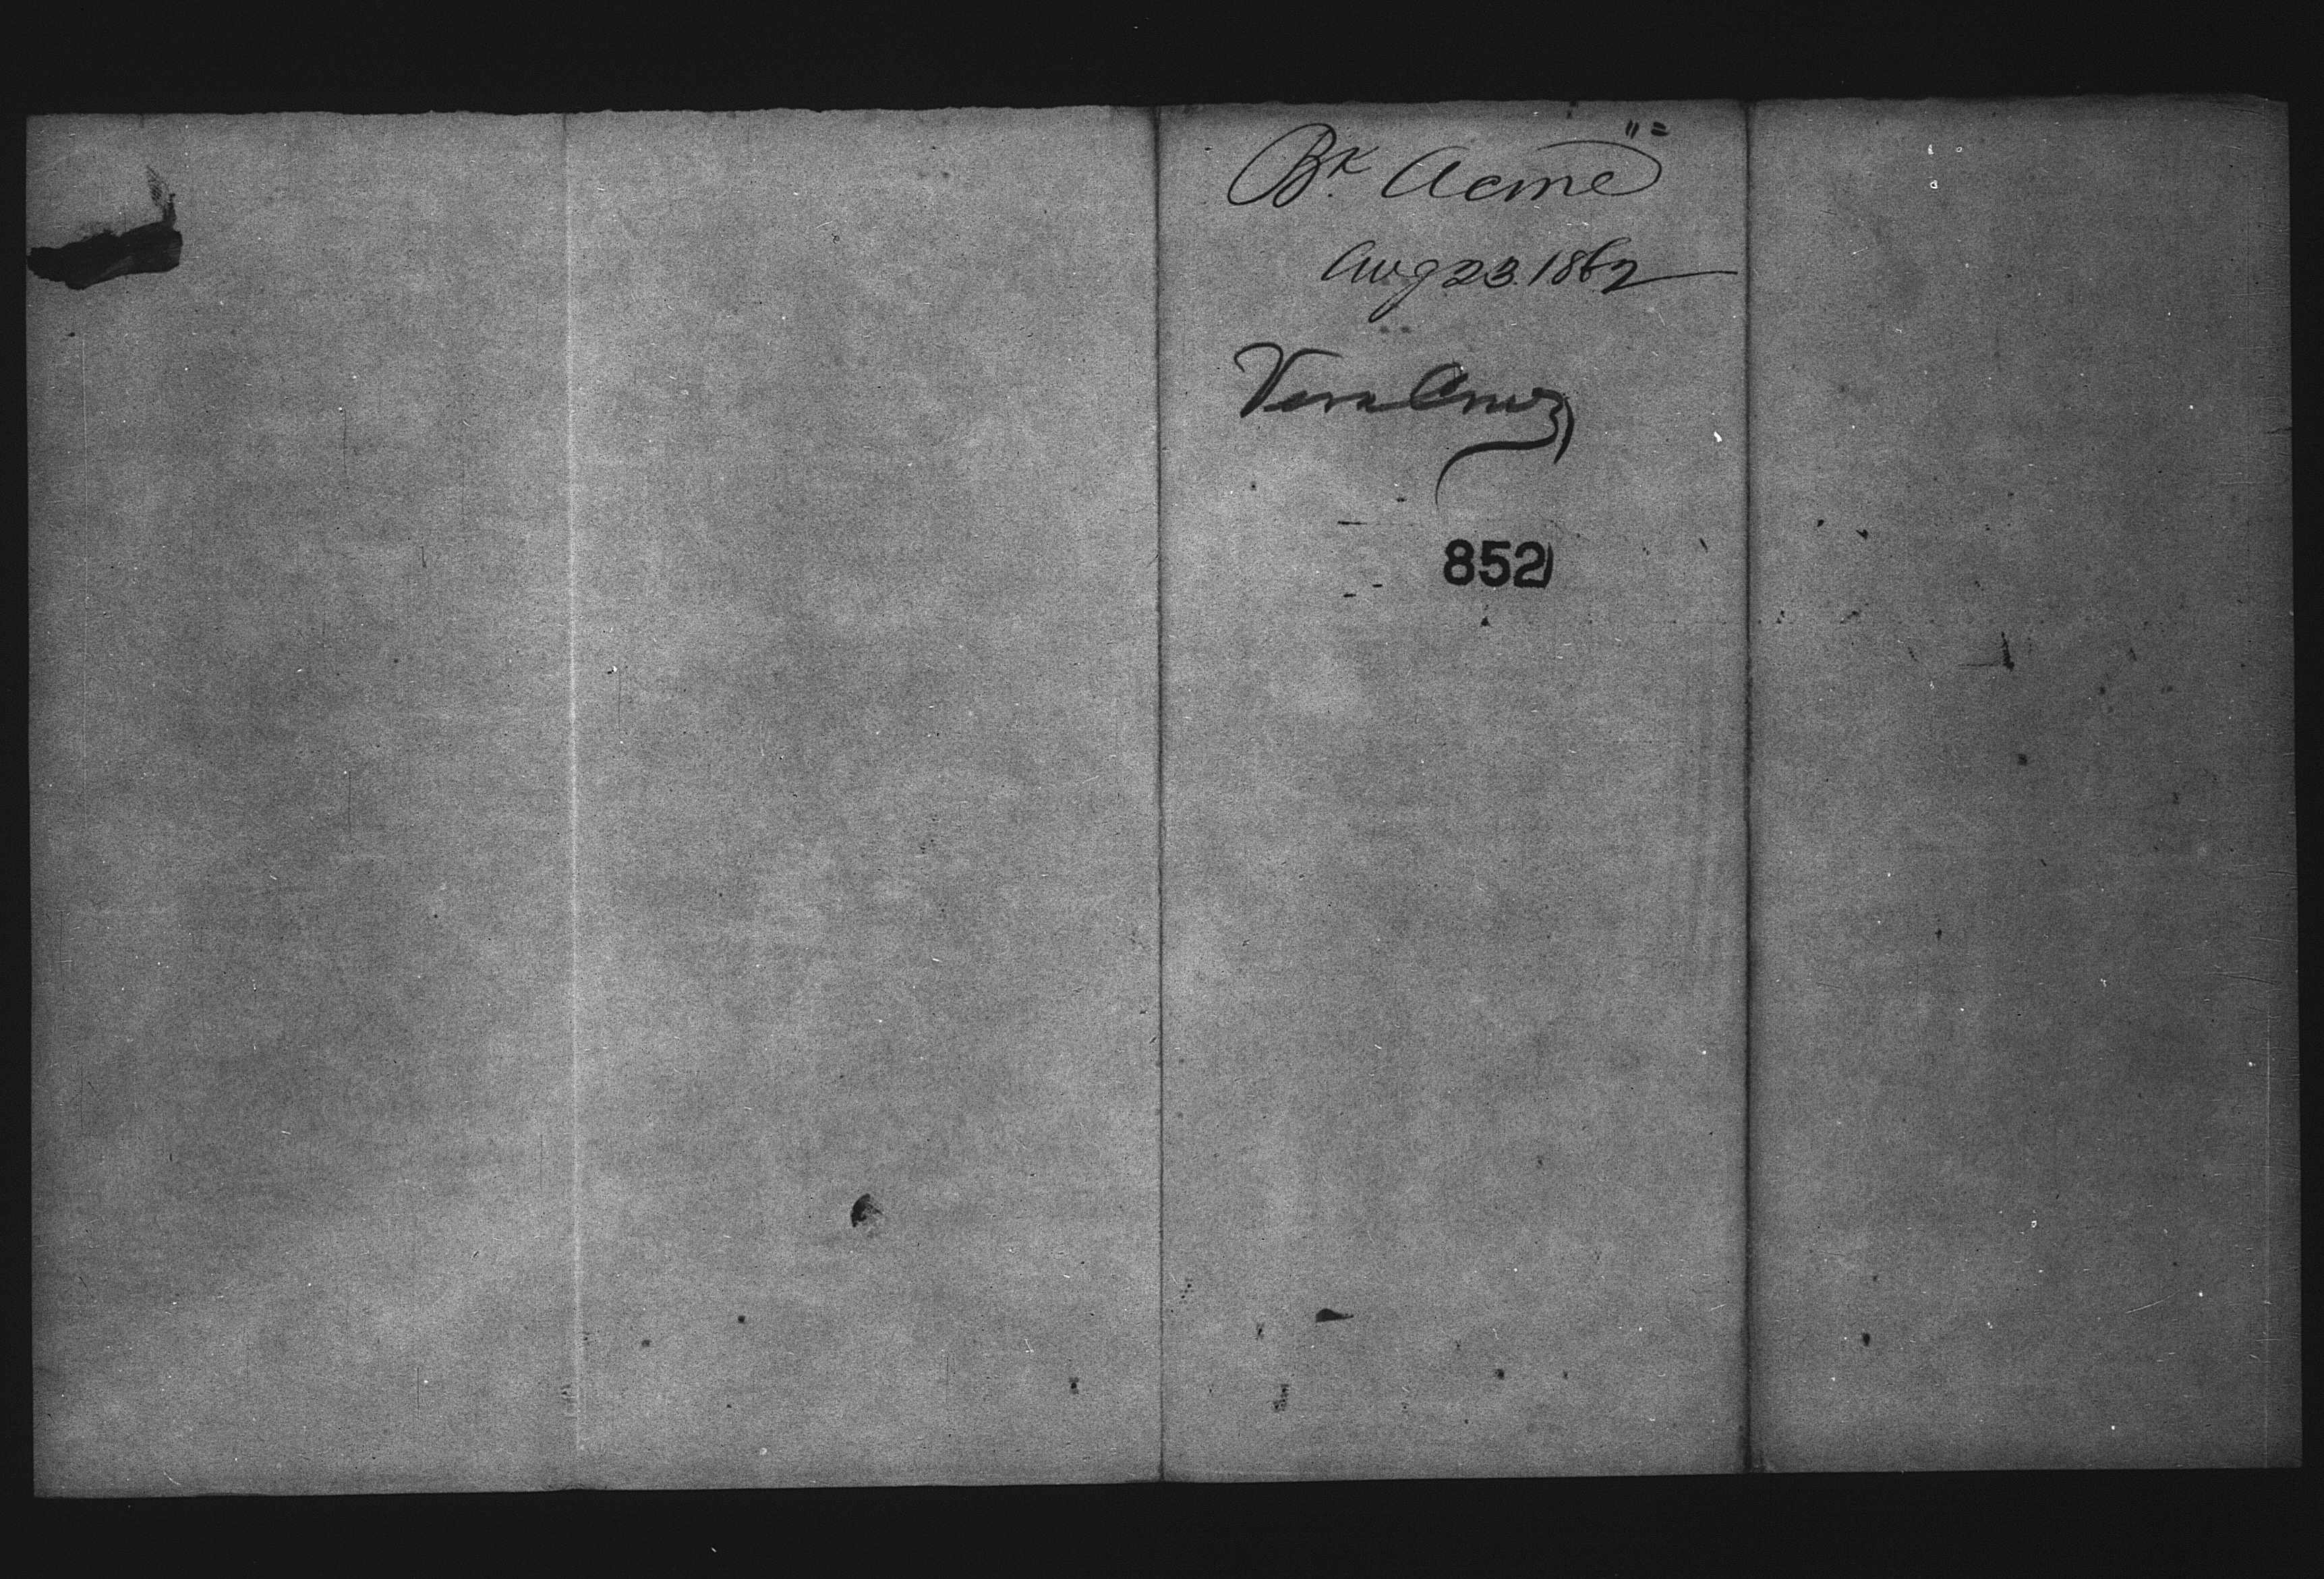 Bk. Acme"
Aug 23. 1862
Vera Cruz
852